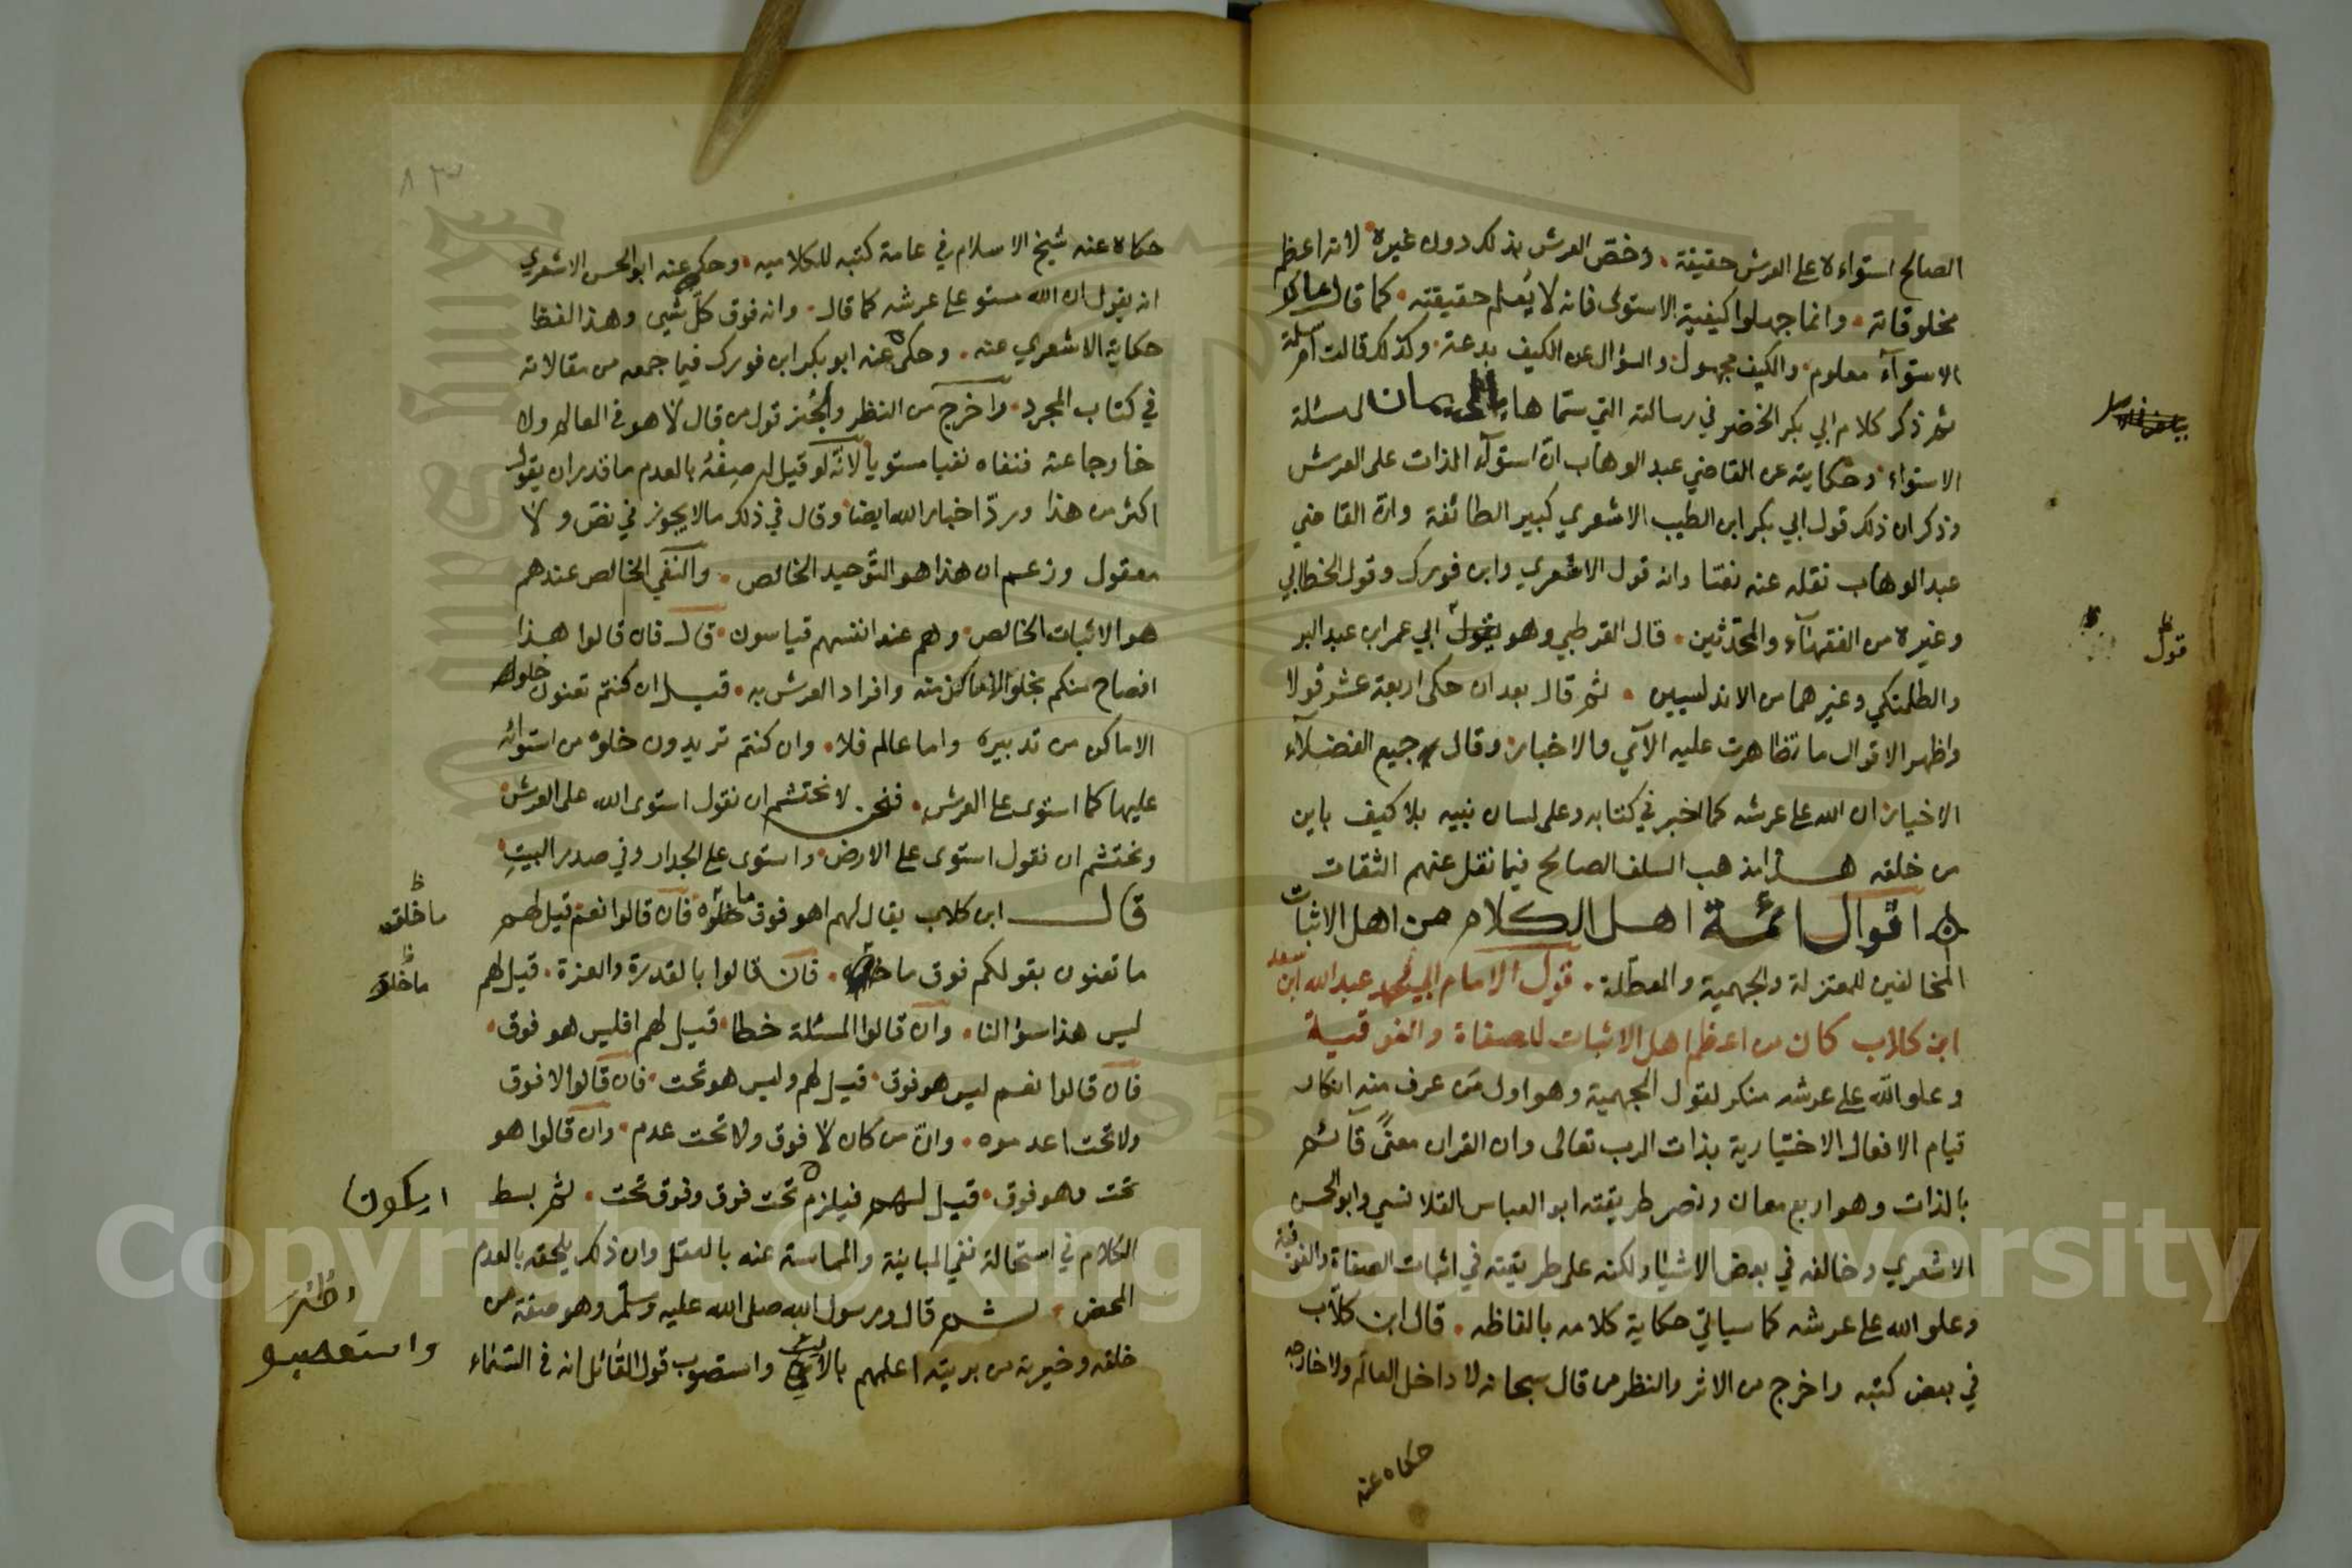 الصالح استواءه على العرش حقيقة . وخصّ العرش بذلك دون غيره لانه اعظم
مخلوقاته . وانما جهلوا كيفية الاستوى فانه لا يُعلم حقيقته . كما قال مالك
الاستوآء معلوم . والكيف مجهول . والسؤال عن الكيف بدعة . وكذلك قالت ام سلمة
ثم ذكر كلام ابي بكر الخضر في رسالته التي سمّاها لمسئلة
الاستواء . وحكايته عن القاضي عبد الوهاب انّ استوآء الذات على العرش
وذكر ان ذلك قول ابي بكر ابن الطيب الاشعري كبير الطائفة وانّ القاضي
عبد الوهاب نقله عنه نصّا وانه قول الاشعري وابن فورك وقول الخطابي
وغيره من الفقهآء والمحدّثين . قال القرطبي وهو يقول ابي عمر ابن عبد البر
قول
والطلمنكي وغيرهما من الاندلسيين . ثم قال بعد ان حكى اربعة عشر قولا
واظهر الاقوال ما تظاهرت عليه الآي والاخبار . وقال جميع الفضلآء
الاخيار ان الله على عرشه كما اخبر في كتابه وعلى لسان نبيه بلا كيف باين
من خلقه هذا مذهب السلف الصالح فيما نقل عنهم الثقات
اقوال ائمة اهل الكلام من اهل الاثبات
المخالفين للمعتزلة والجهمية والمعطّلة . قول الامام ابي محمد عبد الله ابن سعد
ابن كلاب كان من اعظم اهل الاثبات للصفاة والفوقية
وعلو الله على عرشه منكر لقول الجهمية وهو اول من عرف منه انكار
قيام الافعال الاختيارية بذات الرب تعالى وان القران معنًى قآئم
بالذات وهو اربع معان ونصر طريقته ابو العباس القلانسي وابو الحسن
الاشعري وخالفه في بعض الاشيا ولكنه على طريقته في اثبات الصفاة والفوقية
وعلو الله على عرشه كما سياتي حكاية كلامه بالفاظه . قال ابن كلاب
في بعض كتبه واخرج من الاثر والنظر من قال سبحانه لا داخل العالم ولا خارجه
حكاه عنه
٨٣
حكاه عنه شيخ الاسلام في عامة كتبه للكلاميه . وحكى عنه ابو الحسن الاشعري
انه يقول ان الله مستو على عرشه كما قال . وانه فوق كلّ شيء وهذا لفظ
حكاية الاشعري عنه . وحكى عنه ابو بكر ابن فورك فيما جمعه من مقالاته
في كتاب المجرد . واخرج من النظر والخبر قول من قال لا هو في العالم ولا
خارجا عنه فنفاه نفيا مستويا لانّه لو قيل له صِفْهُ بالعدم ما قدر ان يقول
اكثر من هذا وردّ اخبار الله ايضا وقال في ذلك مالا يجوز في نص ولا
معقول وزعم ان هذا هو التّوحيد الخالص . والنفي الخالص عندهم
هو الاثبات الخالص . وهم عند انفسهم قياسون . قال فان قالوا هذا
افصاح منكم بخلو الاماكن منه وافراد العرش به . قيل ان كنتم تعنون خلوه
الاماكن من تدبيره واما عالم فلا . وان كنتم تريدون خلوّه من استوائه
عليها كما استوى على العرش . فنحن لا نحتشم ان نقول استوى الله على العرش
ونحتشم ان نقول استوى على الارض . واستوى على الجدار وفي صدر البيت
قال ابن كلاب يقال لهم اهو فوق ما خلق فان قالوا نعم قيل لهم
ما خلق
ما تعنون بقولكم فوق ما خلق . فان قالوا بالقدرة والعزة . قيل لهم
ما خلق
ليس هذا سؤالنا . وان قالوا المسئلة خطا . قيل لهم افليس هو فوق .
فان قالوا نعم ليس هو فوق . قيل لهم وليس هو تحت . فان قالوا لا فوق
ولا تحت اعدموه . وانّ من كان لا فوق ولا تحت عدم . وان قالوا هو
تحت وهو فوق . قيل لهم فيلزم تحت فوق وفوق تحت . ثم بسط
ان يكون
الكلام في استحالة نفي المباينة والمماسة عنه بالعقل وان ذلك يلحقه بالعدم
المحض . ثم قال ورسول الله صلى الله عليه وسلّم وهو صفوة من
خلقه وخيرته من بريته اعلمهم بالاين واستصوب قول القائل انه في السماء
واستصوب